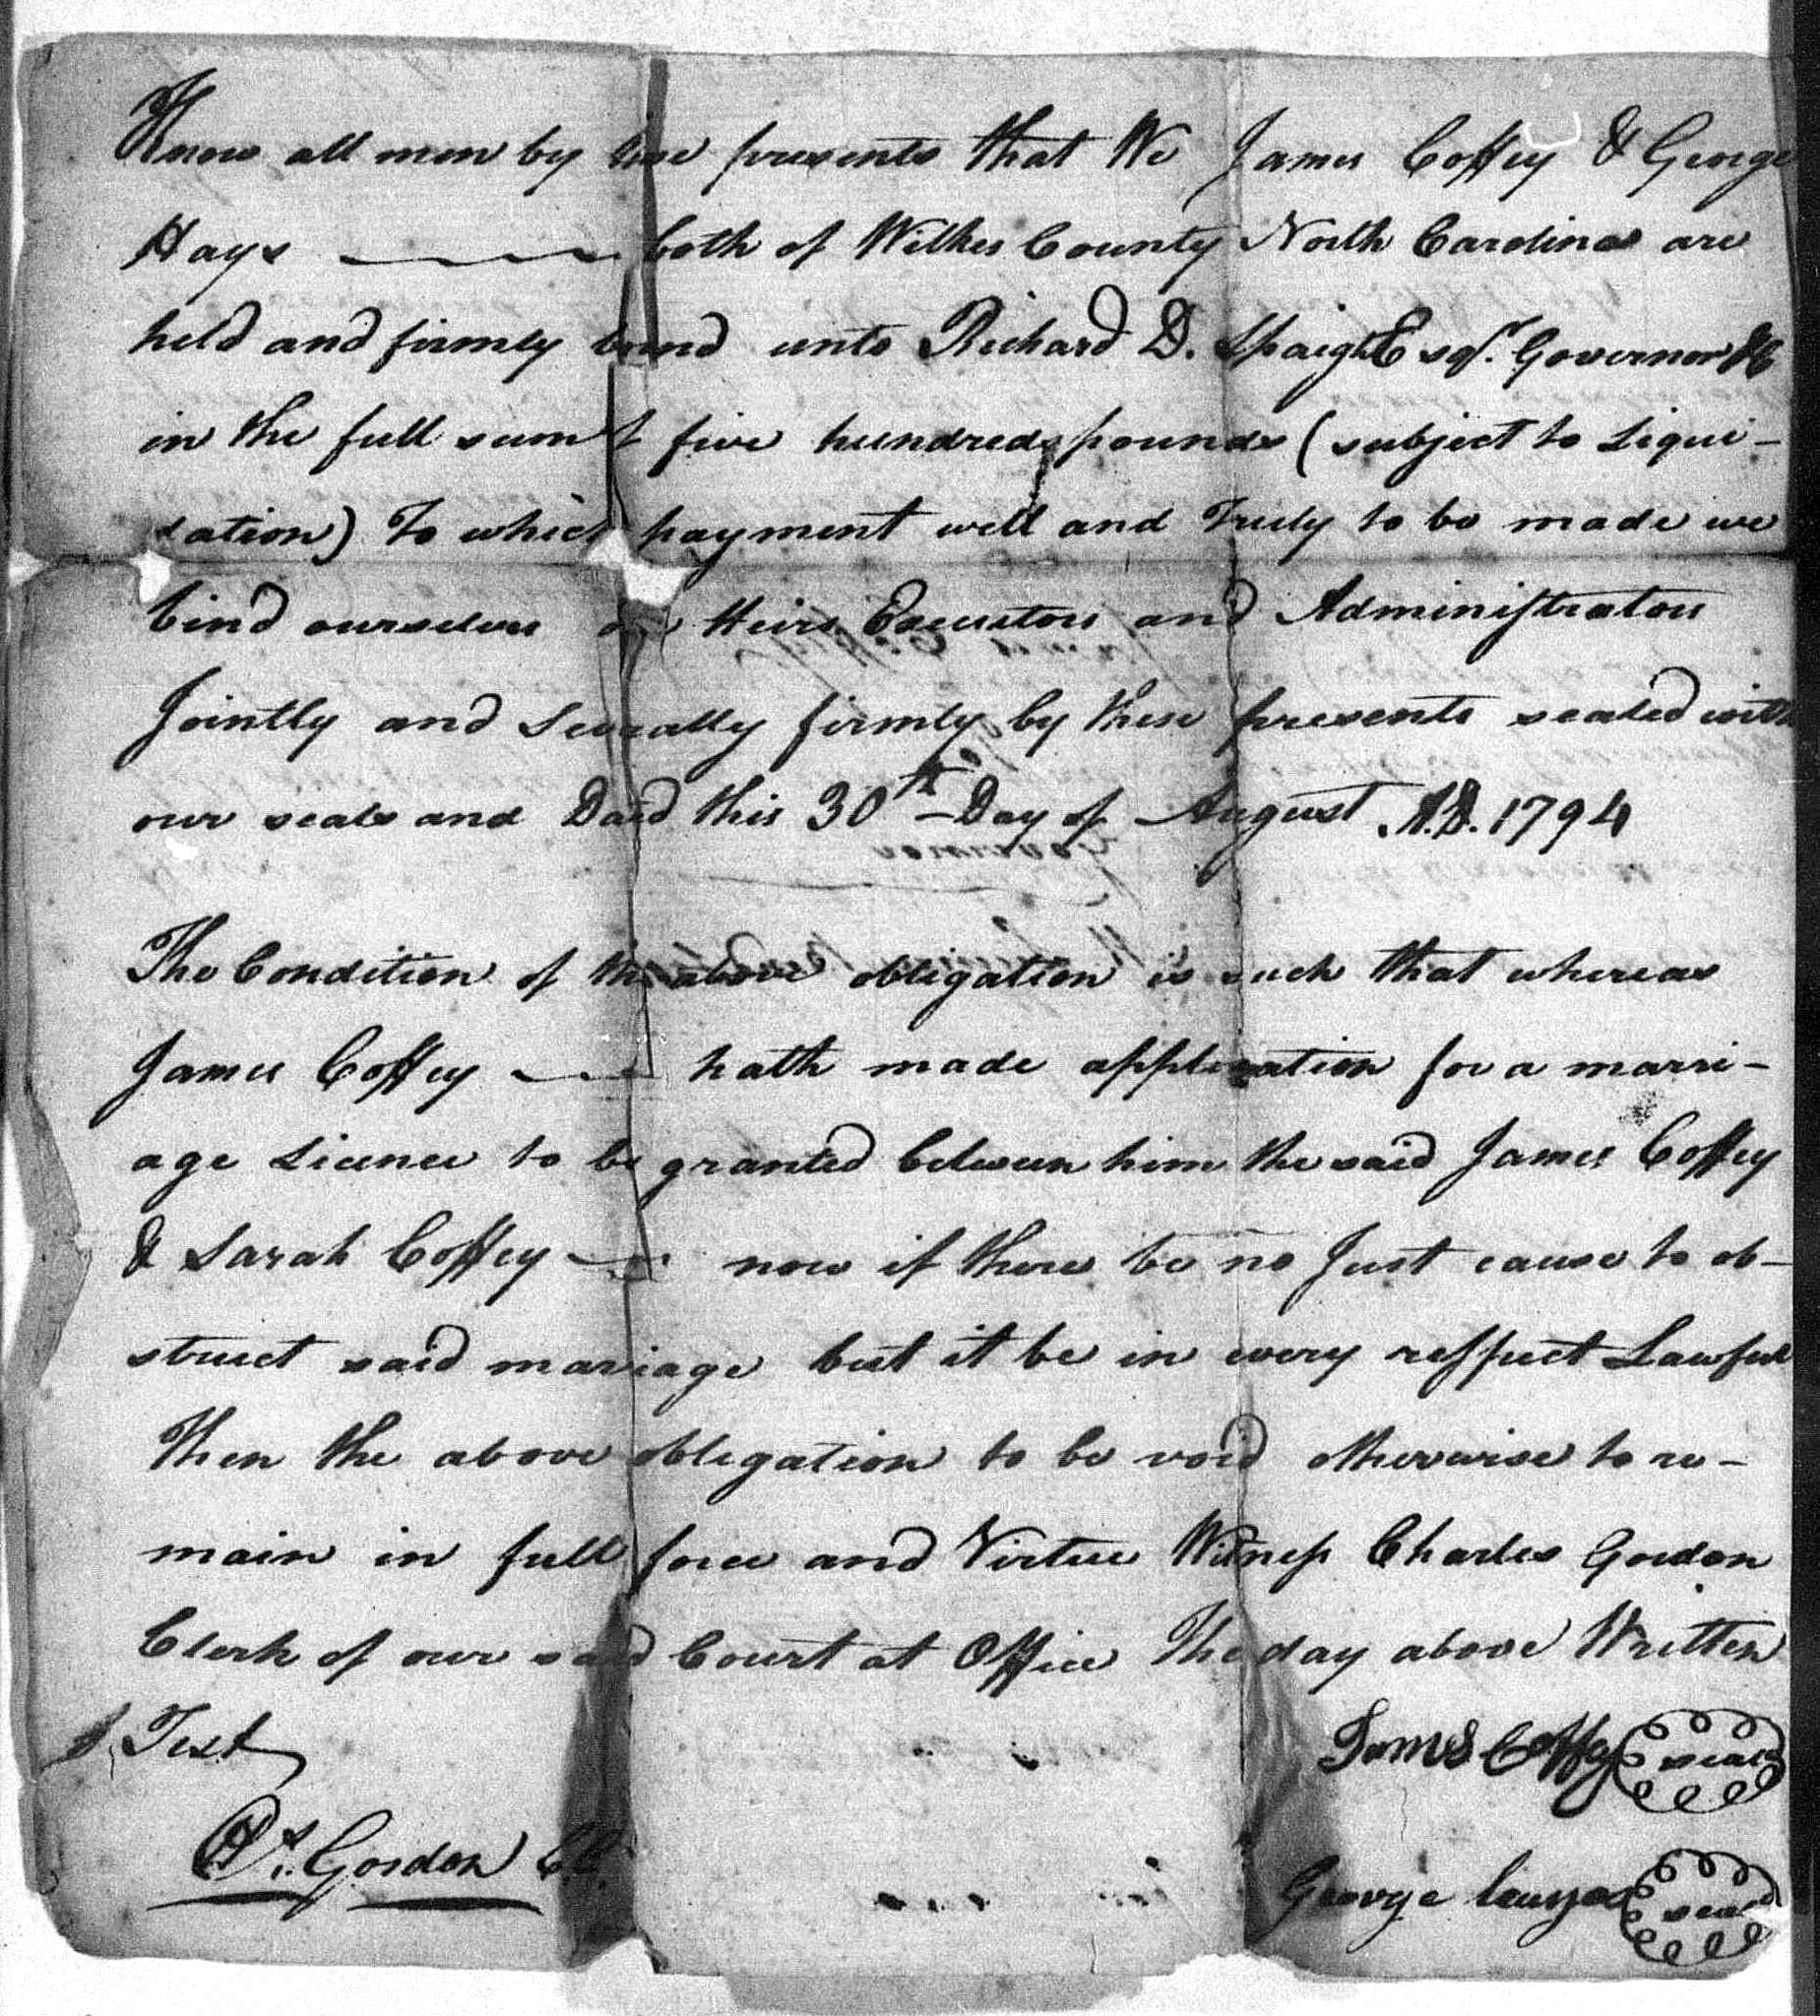 Know all men by these presents that We James Coffey & George
Hays both of Wilkes County North Carolina are
held and firmly bound unto Richard D. Spaight Esqr. Governor &C
in the full sum of five hundred pounds (subject to Liqui-
dation) To which payment well and Truly to be made we
bind ourselves our Heirs Executors and Administrators
Jointly and Severally firmly by these presents sealed with
our seals and Dated this 30th Day of August A.D. 1794
The Condition of the above obligation is such that whereas
James Coffey hath made application for a marri-
age Licence to be granted between him the said James Coffey
& Sarah Coffey now if there be no Just cause to ob-
struct said marriage but it be in every respect Lawful
Then the above obligation to be void otherwise to re-
main in full force and Virtue Witness Charles Gordon
Clerk of our said Court at Office The day above Written
Test
James Coffey seal
Chs. Gordon C.C.
George seal